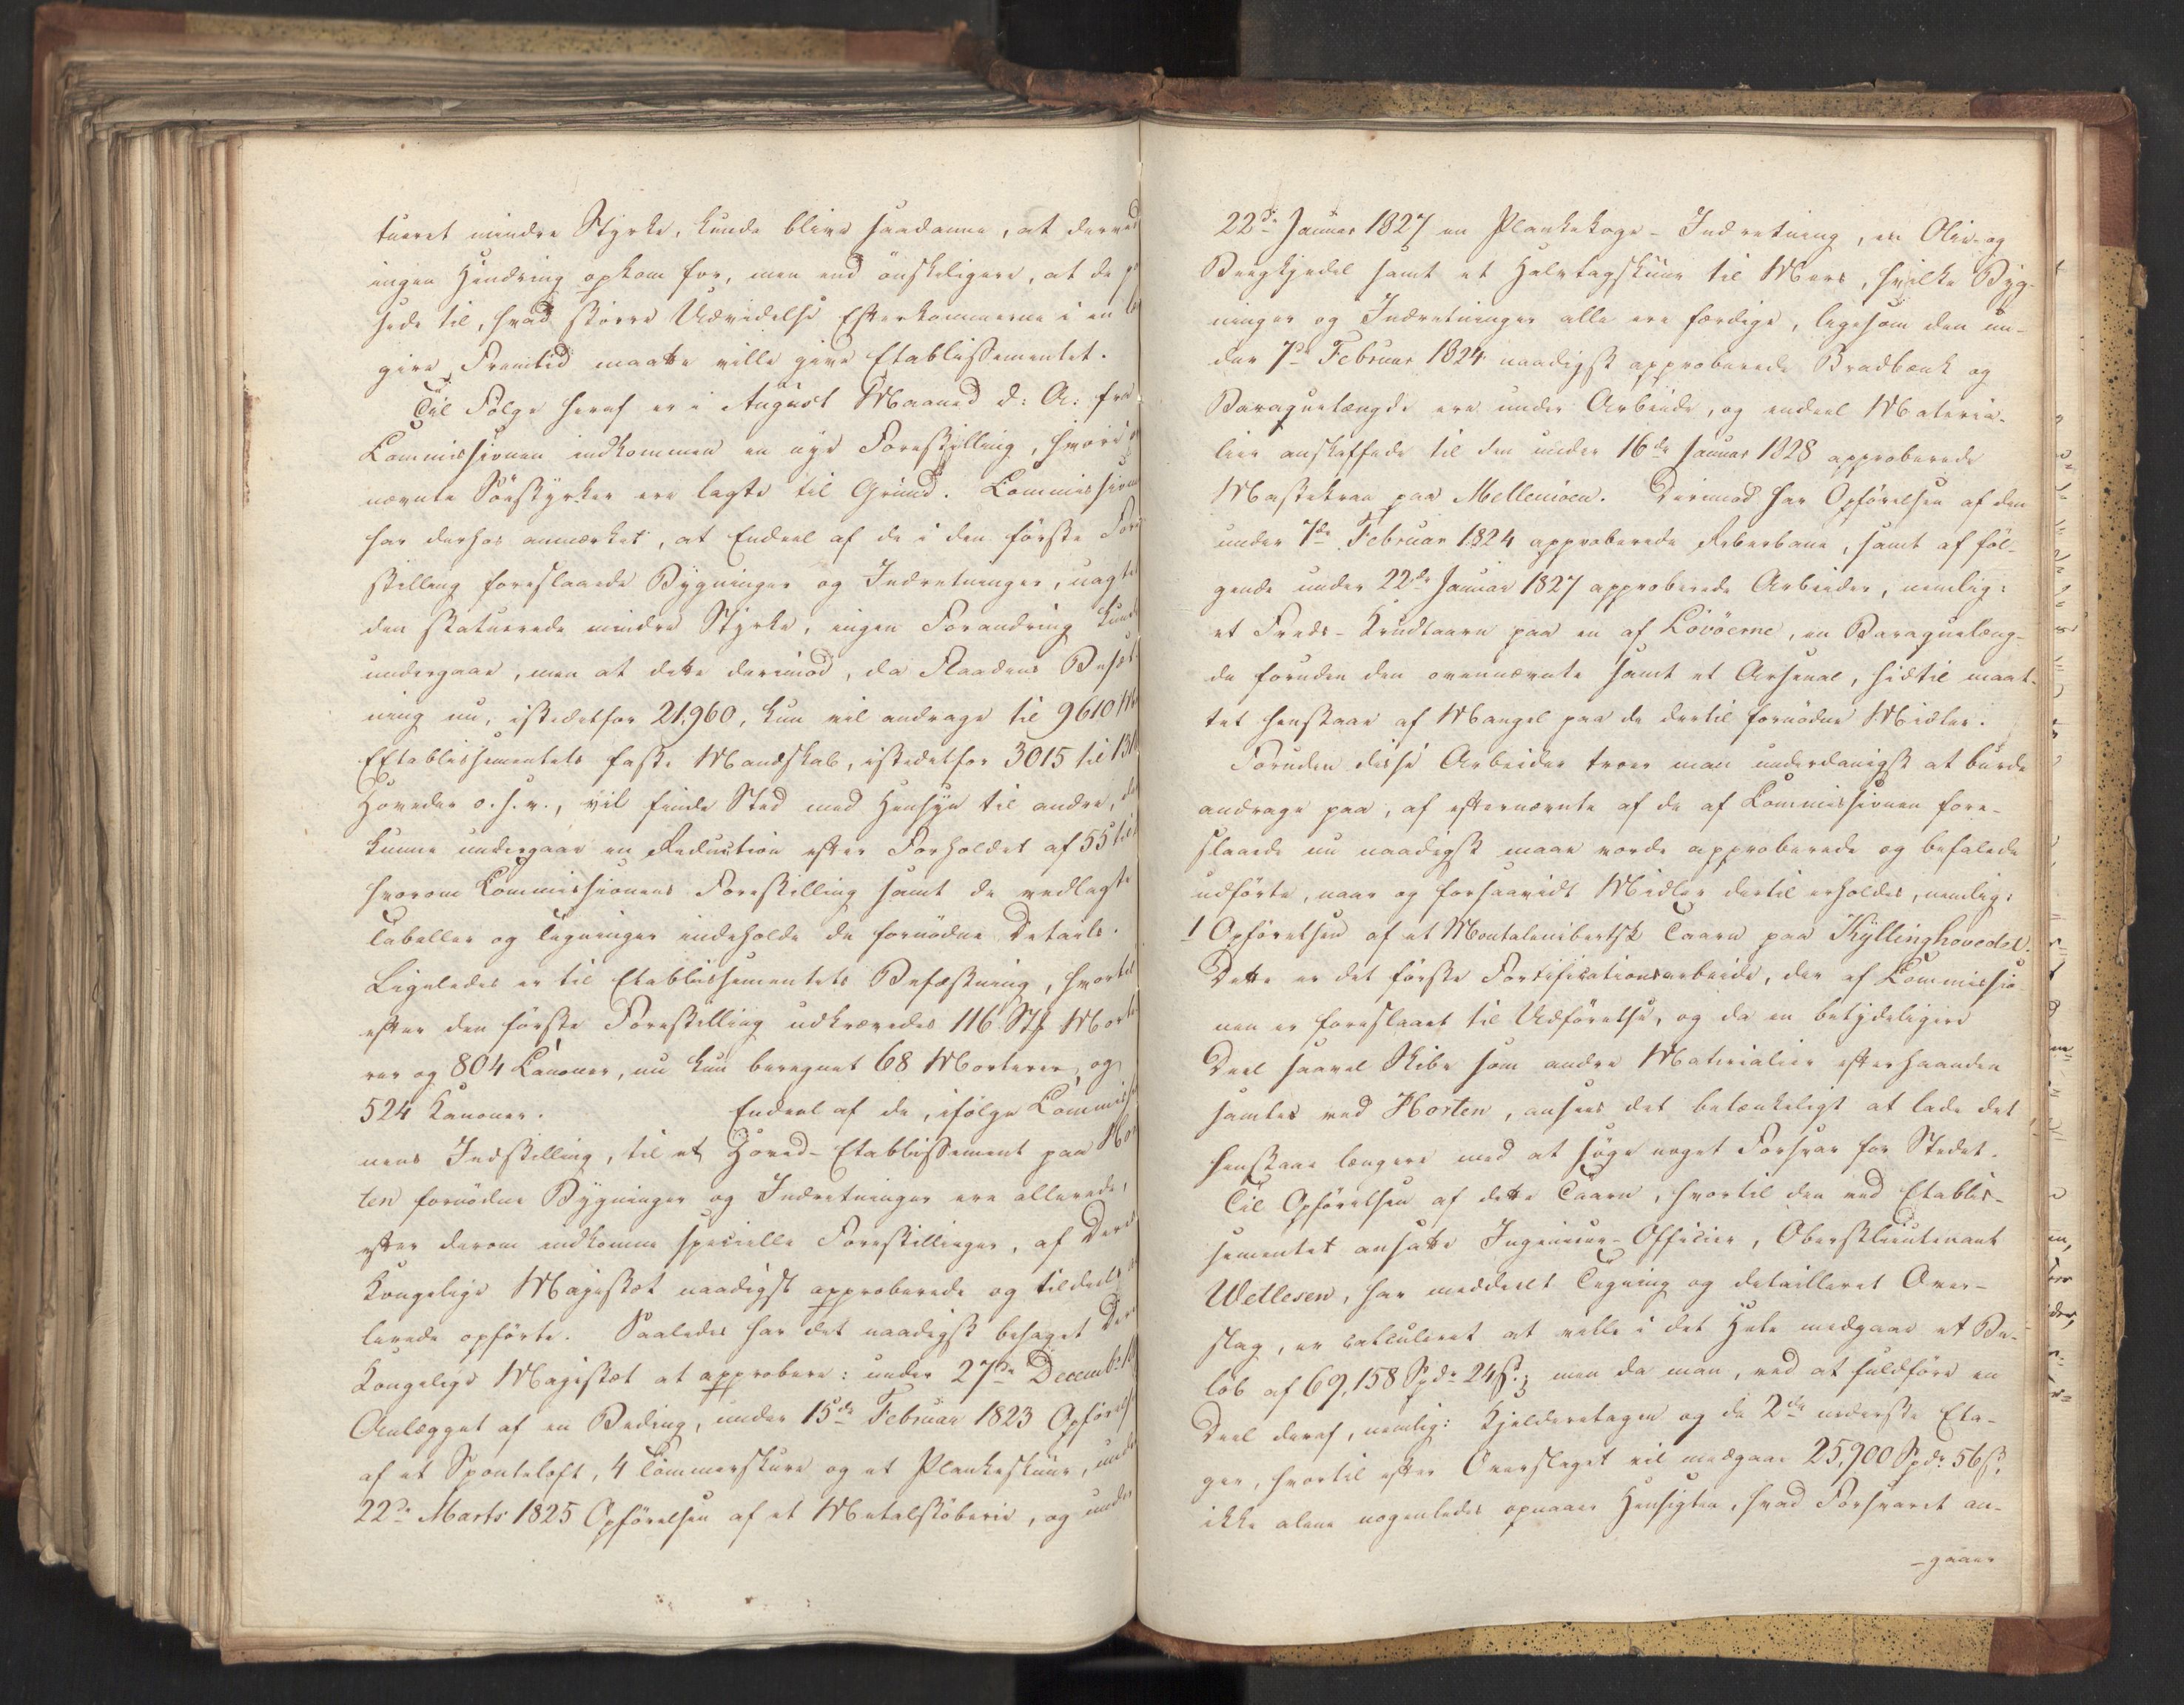 tueret mindre Styrke, kunde blive saadanne, at derved
ingen Hindring opkom for, men end önskeligere, at de
hede til, hvad större Udvidelse Efterkommerne i en
gere Fremtid maatte ville give Etablissementet.
Til Fölge heraf er i August Maaned d: A: fra
Commissionen indkommen en nye Forestilling, hvori
nævnte Söestyrker ere lagte til Grund. Commission
har derhos anmærket, at Endeel af de i den förste Fore
stilling foreslaaede Bygninger og Indretninger, uagtet
den statuerede mindre Styrke, ingen Forandring kunde
undergaae, men at dette derimod, da Flaadens Besæt
ning nu, istedetfor 21,960, kun vil andrage til 9610
Etablissementets faste Mandskab, istedetfor 3015 til
Hoveder o. s. v., vil finde Sted med Hensyn til andre,
kunne undergaae en Reduction efter Forholdet af 55 til
hvorom Commissionens Forestilling samt de vedlagte
Tabeller og Tegninger indeholde de fornödne Details.
Ligeledes er til Etablissementets Befæstning, hvortil
efter den förste Forestilling udkrævedes 116 Stk Morte
rer og 804 Canoner, nu kun beregnet 68 Morterer og
524 Kanoner. Endeel af de, ifölge Commissio
nens Indstilling, til et Hoved-Etablissement paa Hor
ten fornödne Bygninger og Indretninger ere allerede,
efter derom indkomne specielle Forestillinger, af Deres
Kongelige Majestæt naadigst approberede og tildeels
lerede opförte. Saaledes har det naadigst behaget Deres
Kongelige Majestæt at approbere: under 27de December
Anlægget af en Beding, under 15de Februar 1823 Opförelse
af et Sponteloft, 4 Tömmerskure og et Plankeskuur, under
22de Marts 1825 Opförelsen af et Metalstöberie, og under
22de Januar 1827 en Plankekoge-Indretning, en Olie- og
Beegkjedel samt et Halvtagskuur til Mers, hvilke Byg-
ninger og Indretninger alle ere færdige, ligesom den un-
der 7de Februar 1824 naadigst approberede Bradbænk og
Baraquelængde ere under Arbeide, og endeel Materia-
lier anskaffede til den under 16de Januar 1828 approberede
Mastekran paa Mellemöen. Derimod har Opförelsen af den
under 7de Februar 1824 approberede Reberbane, samt af föl-
gende under 22de Januar 1827 approberede Arbeider, nemlig:
et Freds-Krudtaarn paa en af Lövöerne, en Baraquelæng-
de foruden den ovennævnte samt et Arsenal, hidtil maat-
tet henstaae af Mangel paa de dertil fornödne Midler.
Foruden disse Arbeider troer man underdanigst at burde
andrage paa, at efternævnte af de af Commissionen fore-
slaaede nu naadigst maae vorde approberede og befalede
udförte, naar og forsaavidt Midler dertil erholdes, nemlig:
1 Opförelsen af et Montalembertsk Taarn paa Kyllinghovedet.
Dette er det förste Fortificationsarbeide, der af Commissio-
nen er foreslaaet til Udförelse, og da en betydeligere
Deel saavel Skibe som andre Materialier efterhaanden
samles ved Horten, ansees det betænkeligt at lade det
henstaae længere med at söge noget Forsvar for Stedet.
Til Opförelsen af dette Taarn, hvortil den ved Etablis-
sementet ansatte Ingenieur-Officier, Oberstlieutenant
Wetlesen, har meddeelt Tegning og detailleret Over-
slag, er calculeret at ville i det Hele medgaae et Be-
löb af 69,158 Spdr 24 ß; men da man, ved at fuldföre en
Deel deraf, nemlig: Kjelderetagen og de 2de nederste Eta-
ger, hvortil efter Overslaget vil medgaae 25,900 Spdr 56 ß,
ikke alene nogenledes opnaaer Hensigten, hvad Forsvaret an-
- gaaer